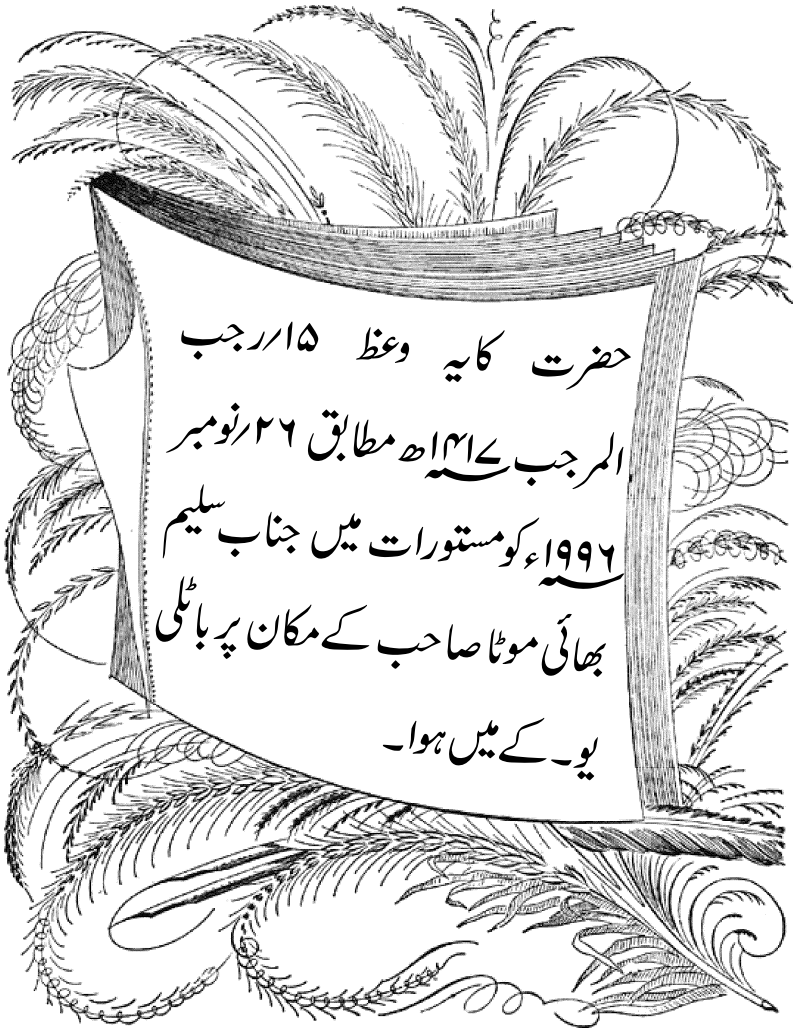 حضرت کا یہ وعظ ۱۵/رجب
المرجب ۱۴۱۷ھ مطابق ۲۶/نومبر
۱۹۹۶ء کو مستورات میں جناب سلیم
بھائی موٹا صاحب کے مکان پر باٹلی
یو۔کے میں ہوا۔